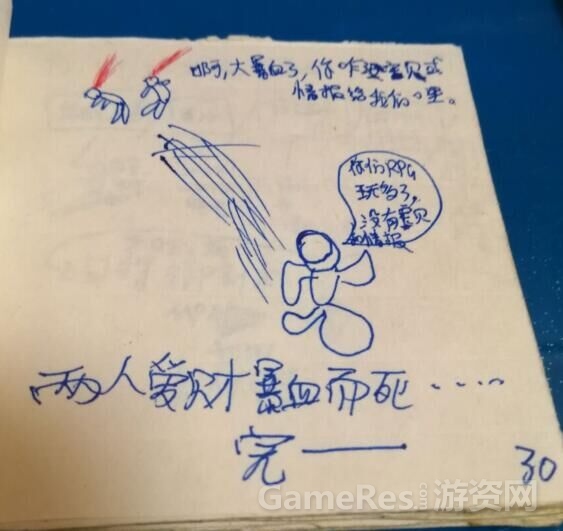 啊，大暴血了，你咋没宝贝或
情报给我们哩。
你们RPG
玩多了，
没有宝贝
和情报
两人爱财暴血而死……
完——
30
GameRes.com游资网